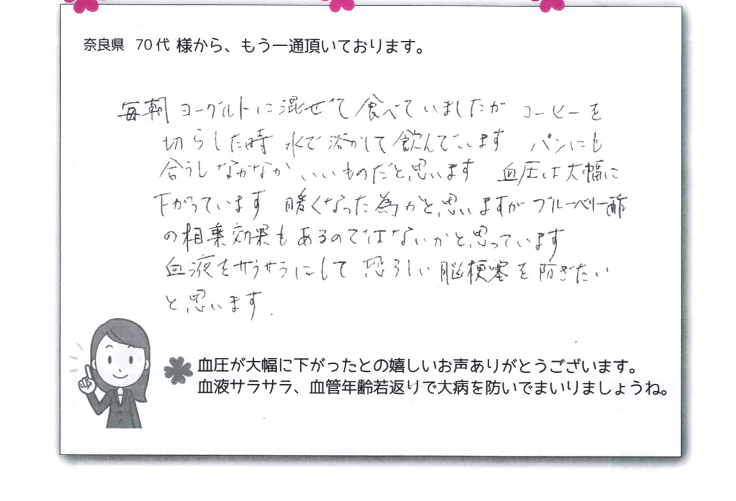 奈良県 70代 様から、もう一通頂いております。
毎朝 ヨーグルトに混ぜて食べていましたが コーヒーを
切らした時 水で溶かして飲んでいます パンにも
合うしなかなかいいものだと思います 血圧は大幅に
下がっています 暖くなった為かと思いますが ブルーベリー酢
の相乗効果もあるのではないかと思っています
血液をサラサラにして 恐ろしい脳梗塞を防ぎたい
と思います.
血圧が大幅に下がったとの嬉しいお声ありがとうございます。
血液サラサラ、血管年齢若返りで大病を防いでまいりましょうね。